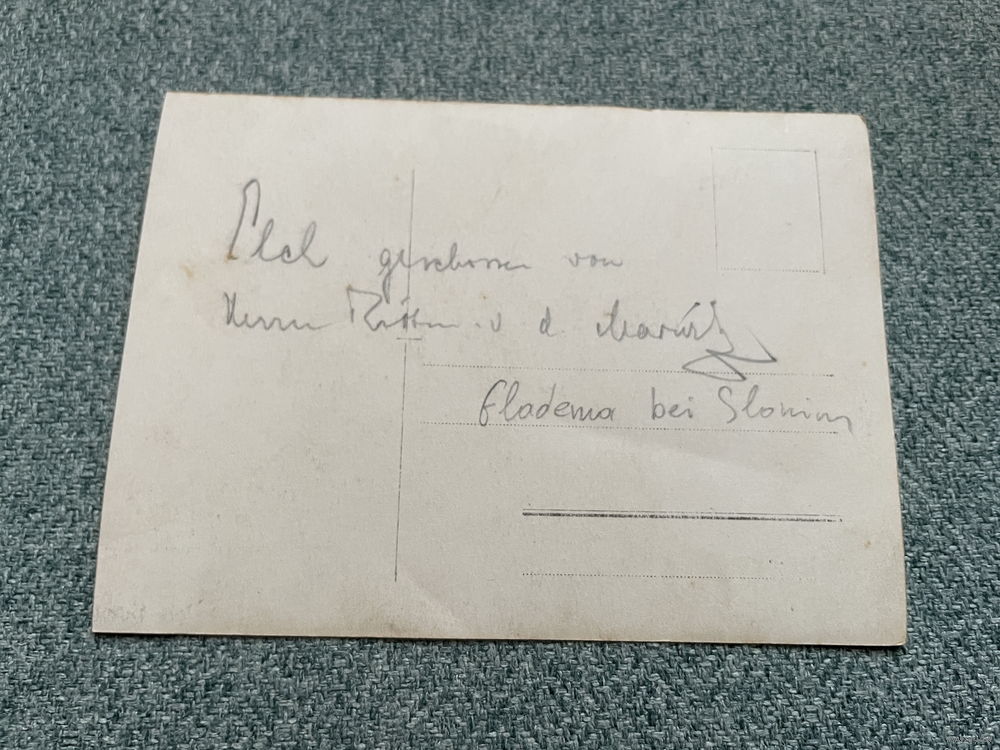 Elch geschossen von
Herrn Rittm. v. d. Marwitz
Gladema bei Slonim